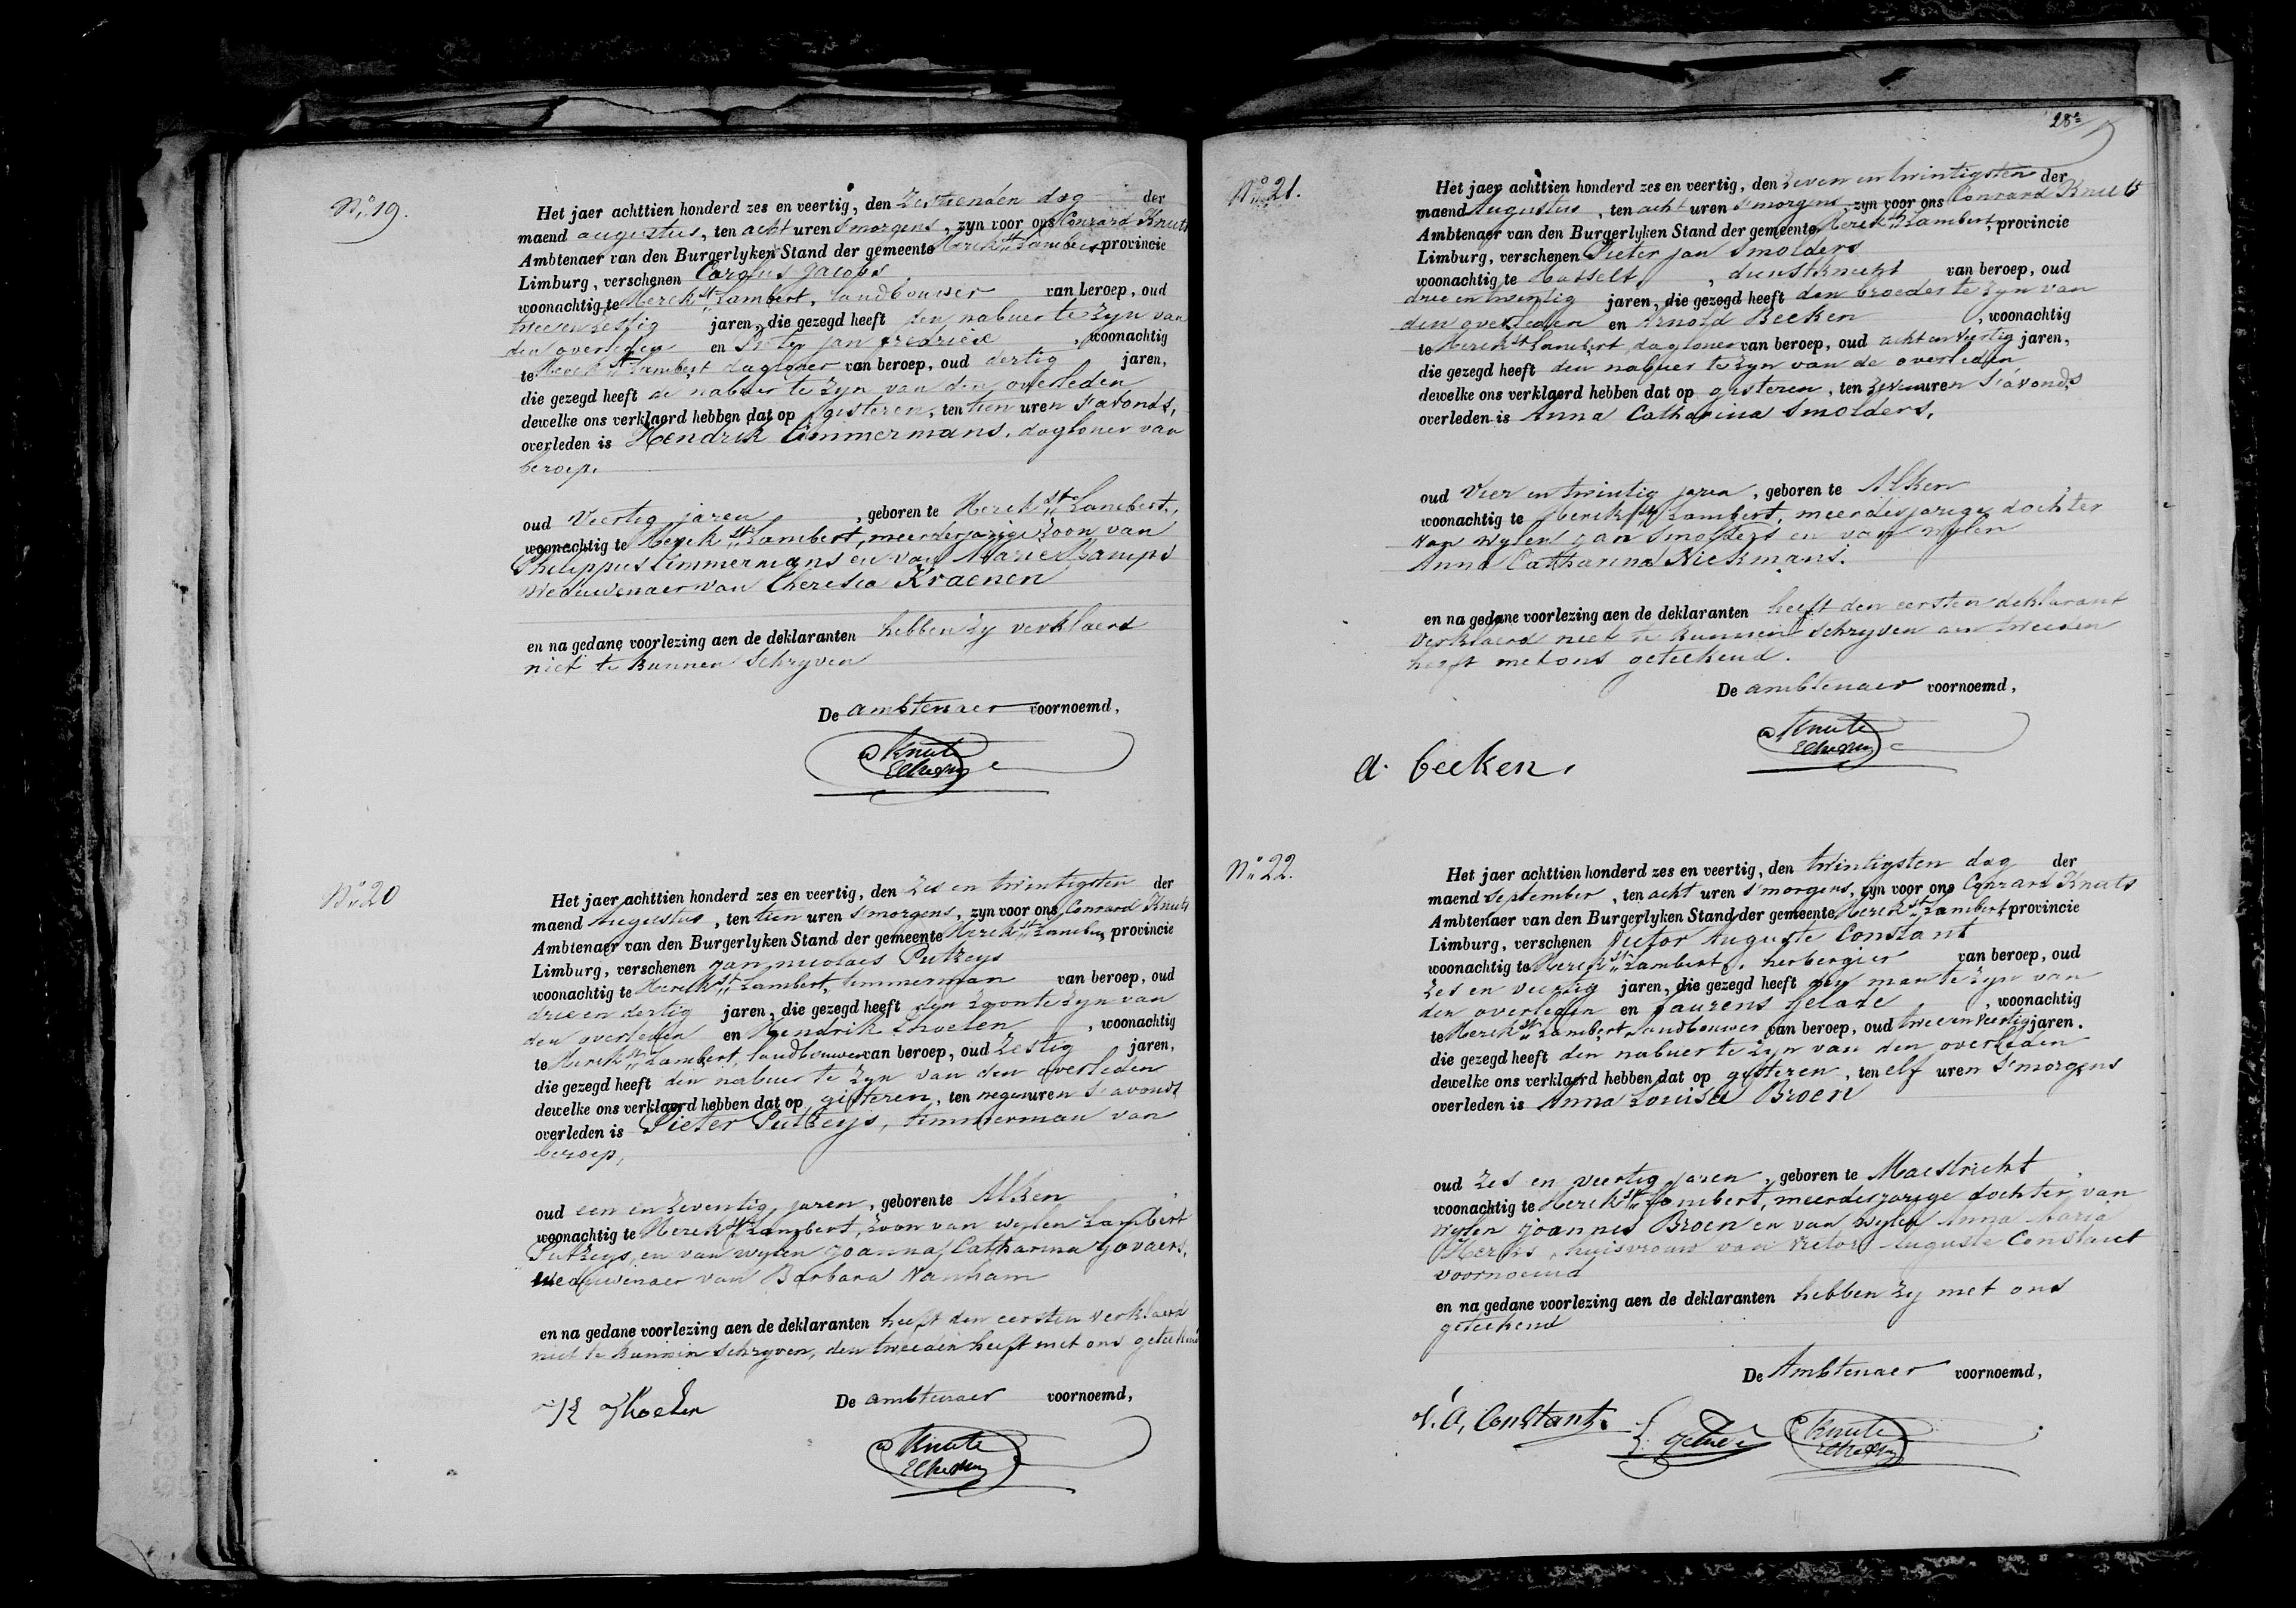 N.° 19.
Het jaer achttien honderd zes en veertig, den Zestienden dag der
maend augustus, ten acht uren s'morgens, zyn voor ons Conrard Knuts
Ambtenaer van den Burgerlyken Stand der gemeente Herck St Lambert provincie
Limburg, verschenen Carolus Jacobs
woonachtig te Herck St Lambert, landbouwer van beroep, oud
twee en zestig jaren, die gezegd heeft den nabuer te zyn van
den overleden en Pieter Jan , woonachtig
te Herck St Lambert dagloner van beroep, oud dertig jaren,
die gezegd heeft de nabuer te zyn van den overleden
dewelke ons verklaerd hebben dat op gisteren, ten tien uren s'avonds,
overleden is Hendrik Timmermans, dagloner van
beroep.
oud Veertig jaren, geboren te Herck St Lambert,
woonachtig te Herck St Lambert, meerderjarige zoon van
Philippus Timmermans en van Maria Kamps
Weduwenaer van Theresia Kraenen
en na gedane voorlezing aen de deklaranten hebben zy verklaerd
niet te kunnen schryven
De ambtenaer voornoemd,
C Knuts
N.° 20
Het jaer achttien honderd zes en veertig, den Zes en twintigsten der
maend Augustus, ten tien uren s'morgens, zyn voor ons Conrard Knuts
Ambtenaer van den Burgerlyken Stand der gemeente Herck St Lambert provincie
Limburg, verschenen Jan nicolaes Putzeys
woonachtig te Herck St Lambert, timmerman van beroep, oud
drie en dertig jaren, die gezegd heeft den zoon te zyn van
den overleden en Hendrik Thoelen, woonachtig
te Herck St Lambert, landbouwer van beroep, oud Zestig jaren,
die gezegd heeft den nabuer te zyn van den overleden
dewelke ons verklaerd hebben dat op gisteren, ten negen uren s'avonds
overleden is Pieter Putzeys, timmerman van
beroep,
oud een en zeventig jaren, geboren te Alken
woonachtig te Herck St Lambert, zoon van wylen Lambert
Putzeys, en van wylen Joanna Catharina Govaers,
weduwenaer van Barbara Vanham
en na gedane voorlezing aen de deklaranten heeft den eersten verklaerd
niet te kunnen schryven, den tweeden heeft met ons geteekend
H Thoelen
De ambtenaer voornoemd,
C Knuts
28e
N.° 21.
Het jaer achttien honderd zes en veertig, den zeven en twintigsten der
maend Augustus, ten acht uren s'morgens, zyn voor ons Conrard Knuts
Ambtenaer van den Burgerlyken Stand der gemeente Herck St Lambert, provincie
Limburg, verschenen Pieter jan Smolders
woonachtig te Hasselt, dienstknecht van beroep, oud
drie en twintig jaren, die gezegd heeft den broeder te zyn van
den overleden en Arnold Beeken, woonachtig
te Herck St Lambert, dagloner van beroep, oud acht en veertig jaren,
die gezegd heeft den nabuer te zyn van de overleden
dewelke ons verklaerd hebben dat op gisteren, ten zeven uren s'avonds
overleden is Anna Catharina Smolders,
oud Vier en twintig jaren, geboren te Alken
woonachtig te Herck St Lambert, meerderjarige dochter
van wylen Jan Smolders en van wylen
Anna Catharina Nickmans.
en na gedane voorlezing aen de deklaranten heeft den eersten deklarant
verklaerd niet te kunnen schryven den tweeden
heeft met ons geteekend.
De ambtenaer voornoemd,
C Knuts
A. beeken.
N.° 22.
Het jaer achttien honderd zes en veertig, den twintigsten dag der
maend September, ten acht uren s'morgens, zyn voor ons Conrard Knuts
Ambtenaer van den Burgerlyken Stand der gemeente Herck St Lambert provincie
Limburg, verschenen Victor Auguste Constant
woonachtig te Herck St Lambert, herbergier van beroep, oud
zes en veertig jaren, die gezegd heeft den man te zyn van
den overleden en Laurens Gelade, woonachtig
te Herck St Lambert, landbouwer van beroep, oud twee en veertig jaren.
die gezegd heeft den nabuer te zyn van den overleden
dewelke ons verklaerd hebben dat op gisteren, ten elf uren s'morgens
overleden is Anna Louisa Broen
oud zes en veertig jaren, geboren te Maestricht
woonachtig te Herck St Lambert, meerderjarige dochter van
wylen Joannes Broen en van wylen Anna Maria
huisvrouw van Victor Auguste Constant
voornoemd
en na gedane voorlezing aen de deklaranten hebben zy met ons
geteekend
De Ambtenaer voornoemd,
V. A, Constant.
C Knuts